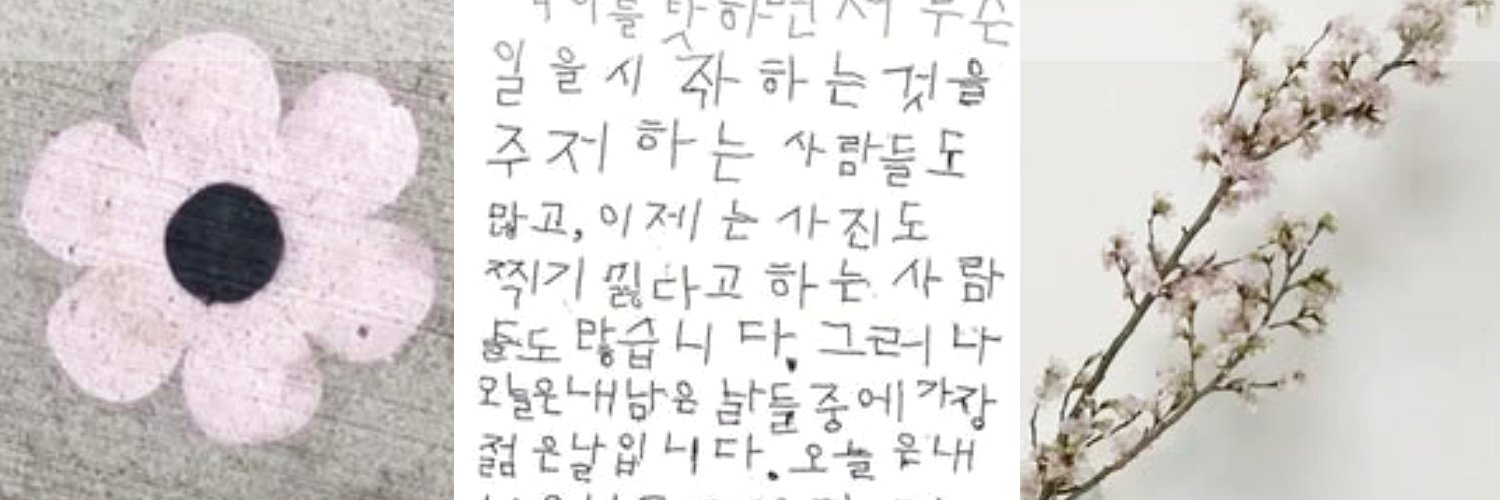 탓하면서 무슨
일을시작하는것을
주저하는 사람들도
많고, 이제는 사진도
찍기 싫다고 하는 사람
들도 많습니다. 그러나
오늘은내남은 날들중에가장
젊은날입니다. 오늘은내